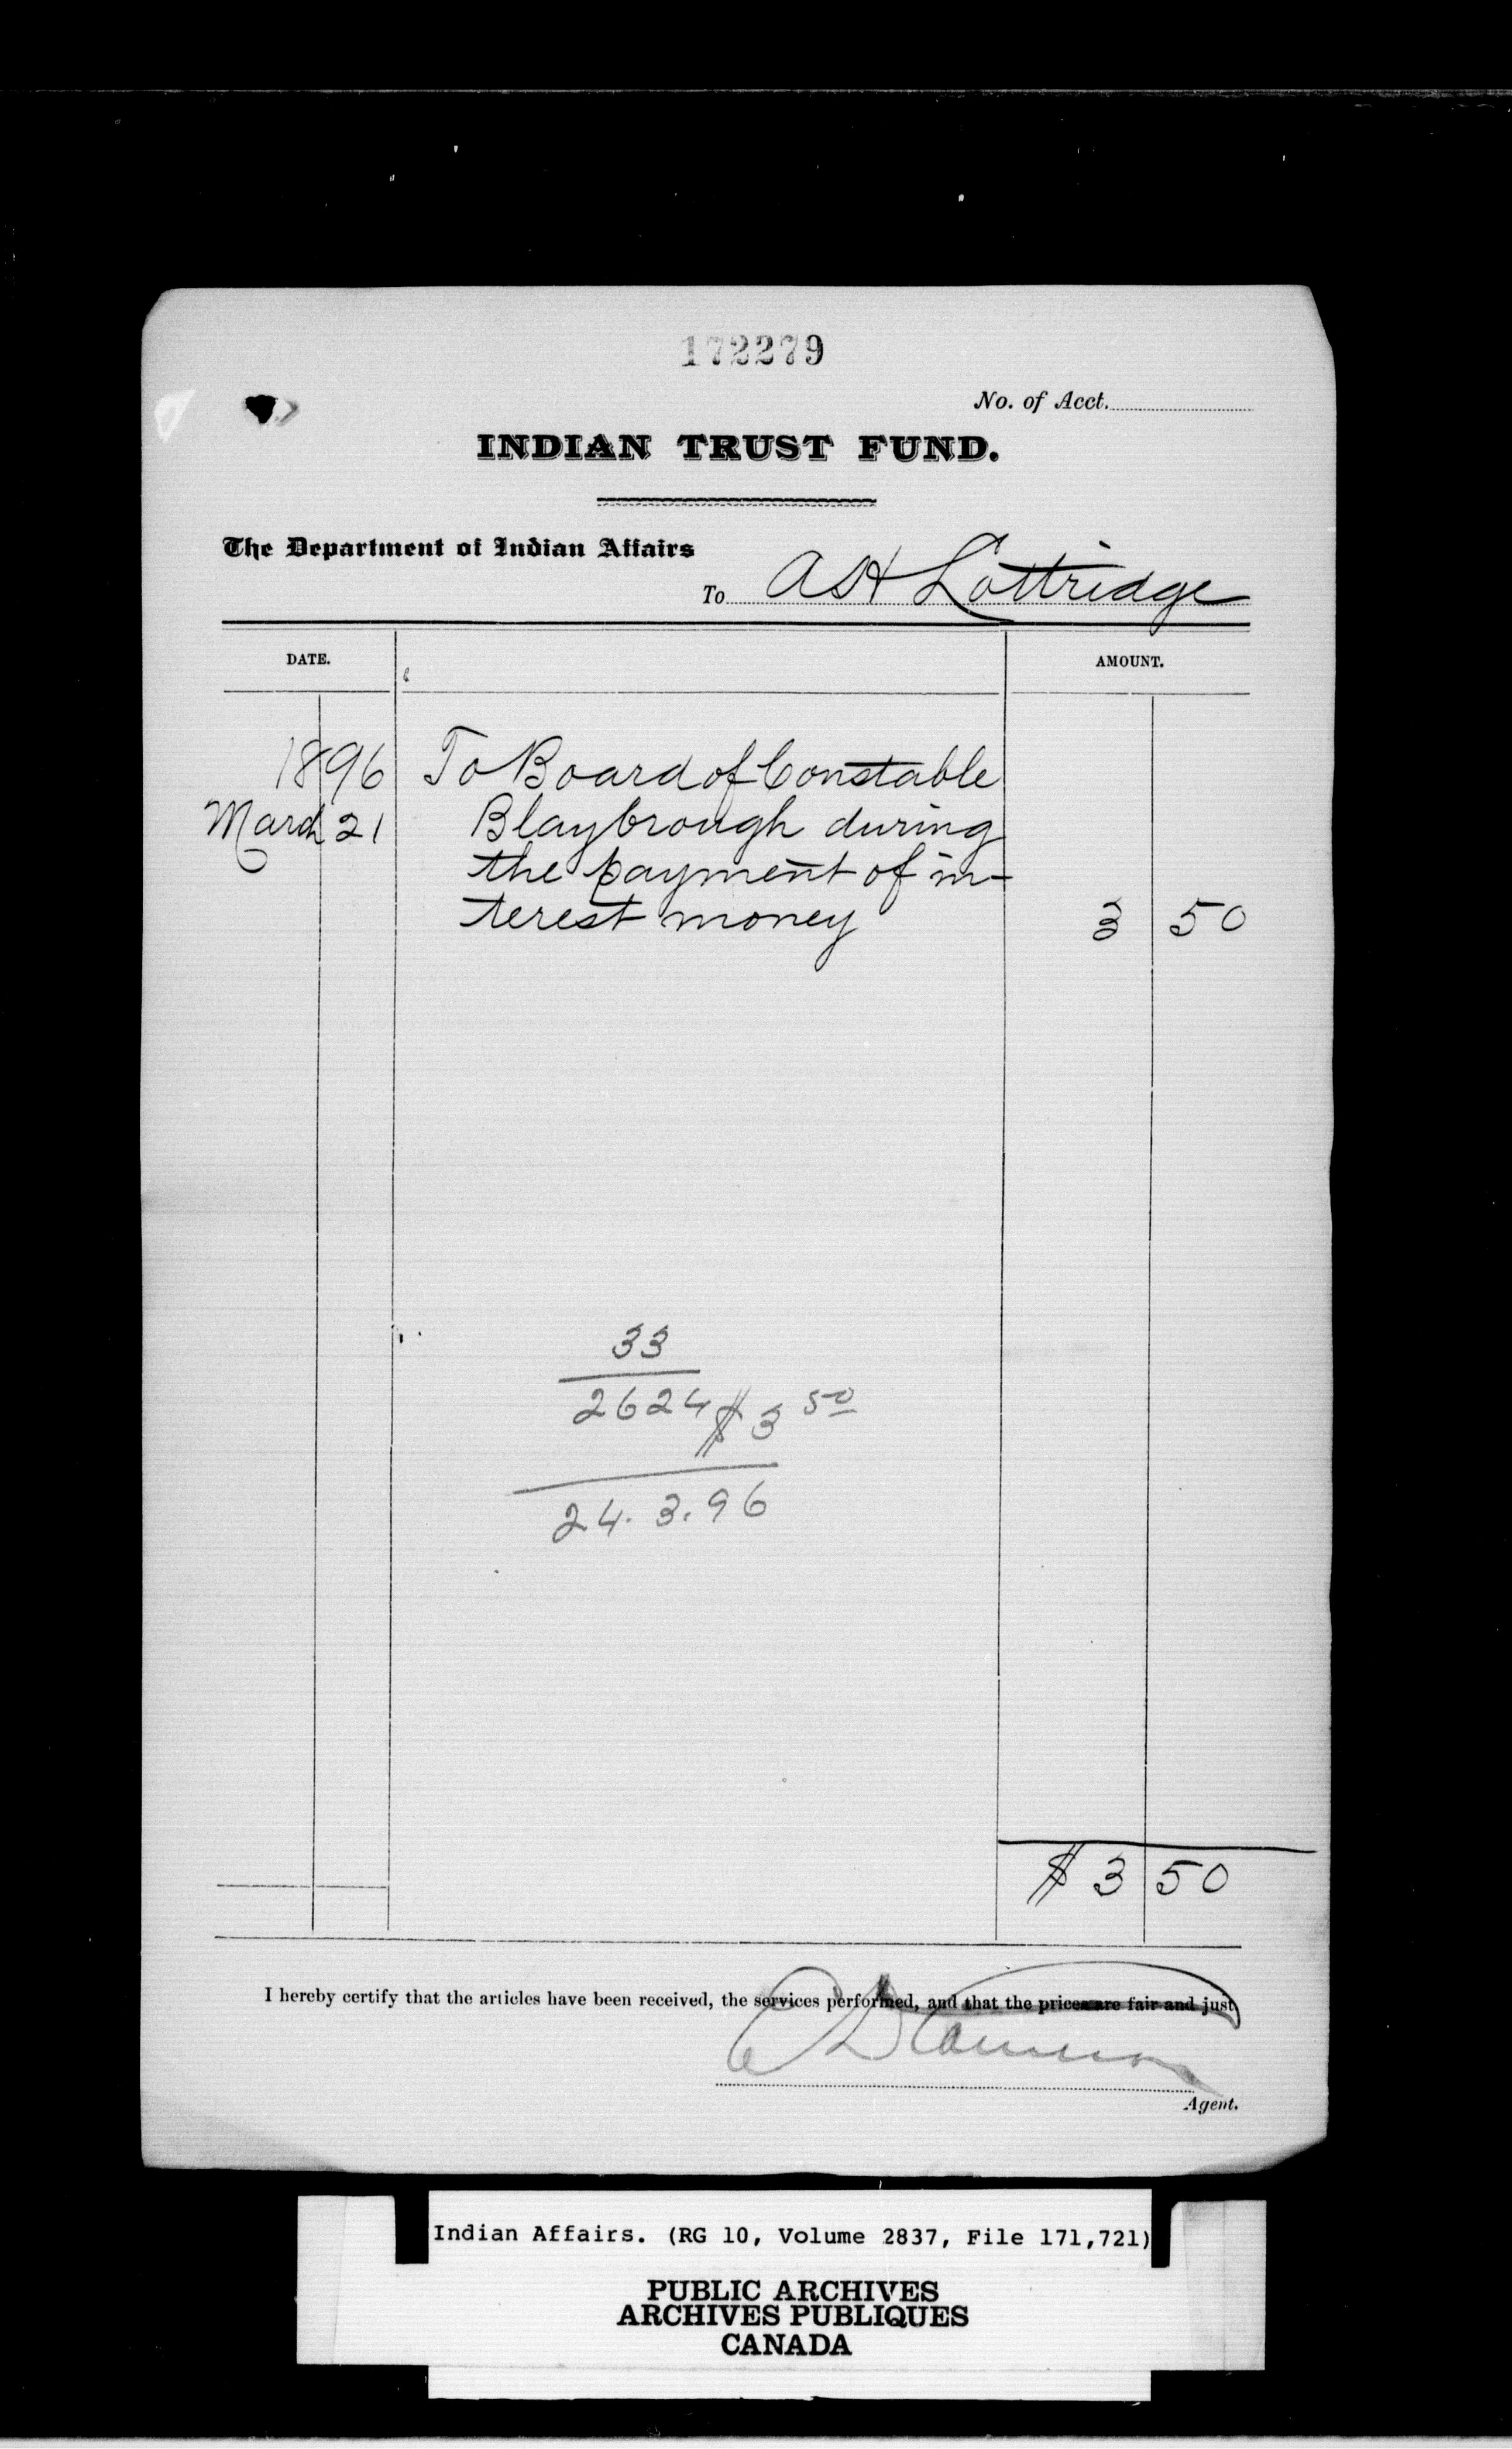 172279
No. of Acct.
INDIAN TRUST FUND.
The Department of Indian Affairs
To A H Lottridge
DATE. AMOUNT.
1896 To Board of Constable
March 21 Blaybrough during
the payment of in-
terest money 3 50
33
2624 $3 50
24.3.96
$ 3 50
I hereby certify that the articles have been received, the services performed, and that the prices are fair and just
E D Cameron
Agent.
Indian Affairs. (RG 10, Volume 2837, File 171,721)
PUBLIC ARCHIVES
ARCHIVES PUBLIQUES
CANADA